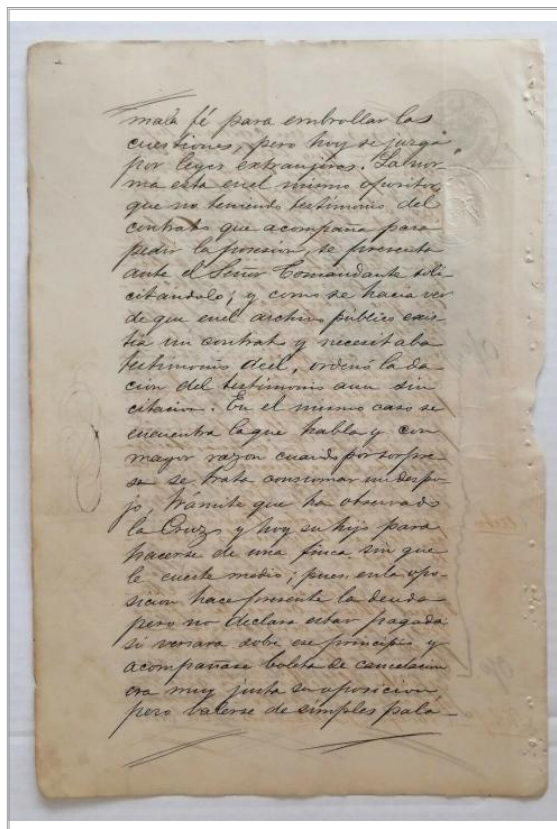 mala fé para embrollar las
cuestiones, pero hoy se juzga
por leyes extranjeras. La nor-
ma esta en el mismo opositor
que no teniendo testimonio del
contrato que acompaña para
pedir la posesion, se presenta
ante el Señor Comandante soli-
citandolo; y como se hacia ver
de que en el archivo público exis-
tia un contrato y necesitaba
testimonio de el, ordinó la da-
cion del testimonio aun sin
citacion. En el mismo caso se
encuentra la que habla y con
mayor razon cuando por sorpre-
sa se trata consumar un despo-
jo, trámite que ha observado
la Cruz y hoy su hijo para
hacerse de una finca sin que
le cueste medio; pues en la opo-
sicion hace presente la deuda
pero no declara estar pagada;
si versara sobre ese principio y
acompañase boleta de cancelacion
era muy justa su oposicion,
pero valerse de simples pala-